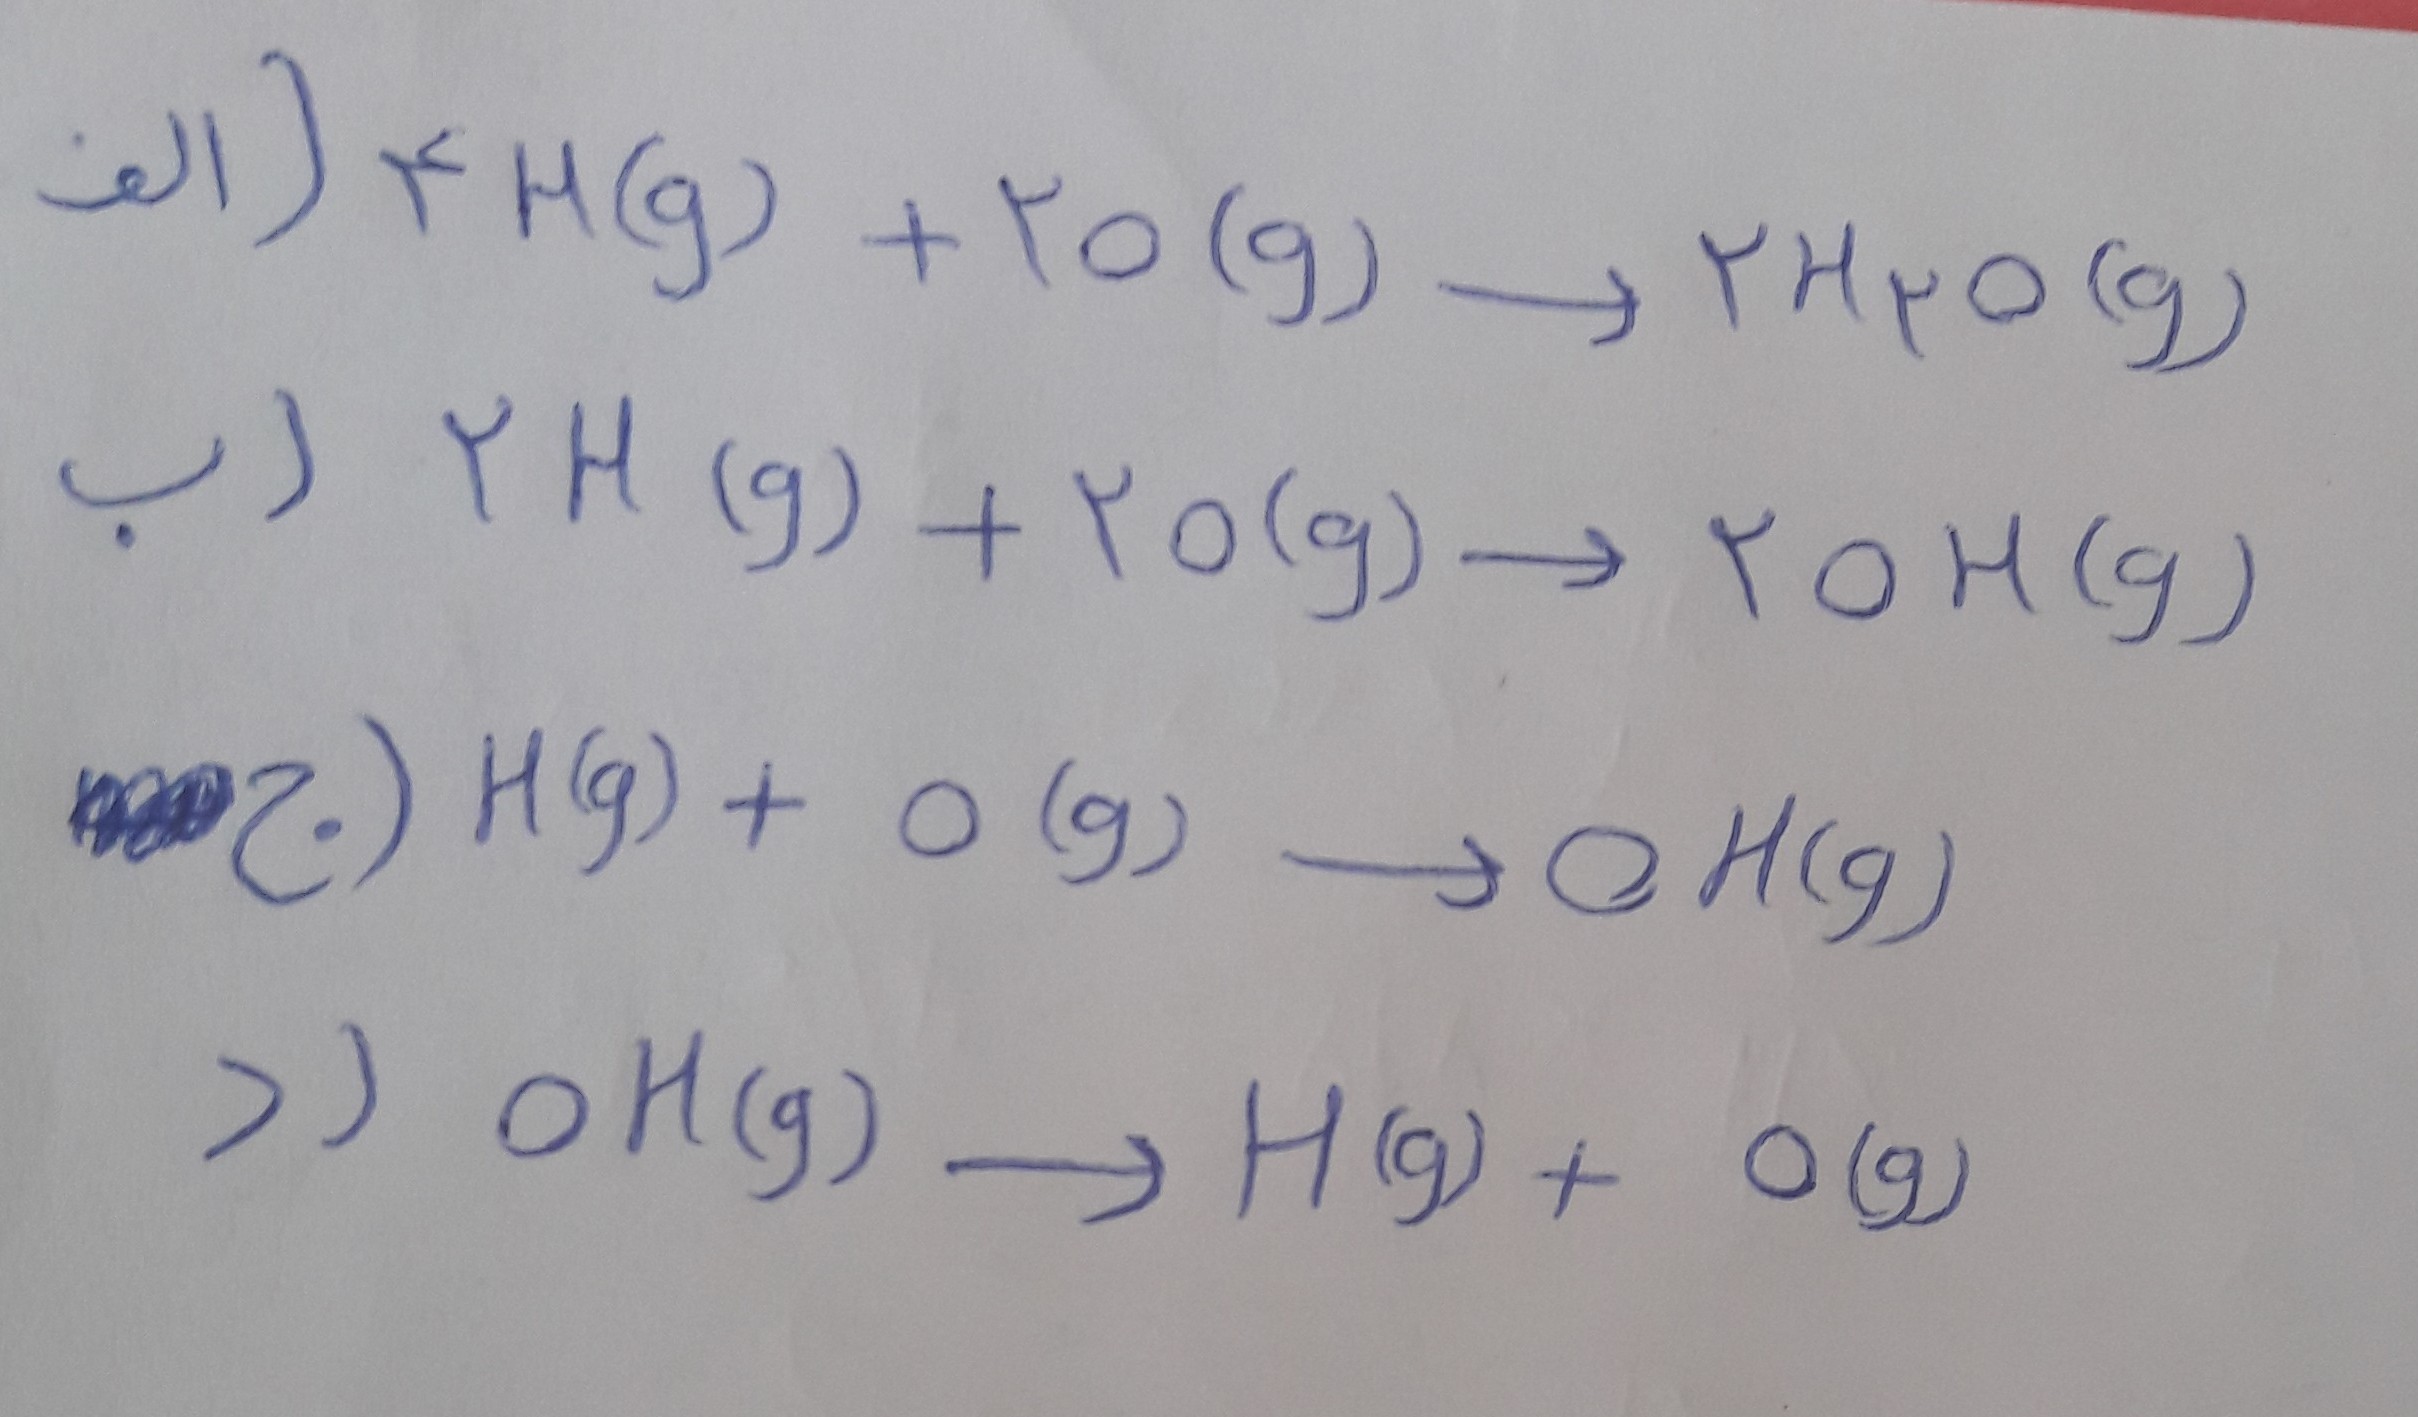 الف) ۴H(g) + ۲O(g) → ۲H۲O(g)
ب) ۲H(g) + ۲O(g) → ۲OH(g)
ج) H(g) + O(g) → OH(g)
د) OH(g) → H(g) + O(g)